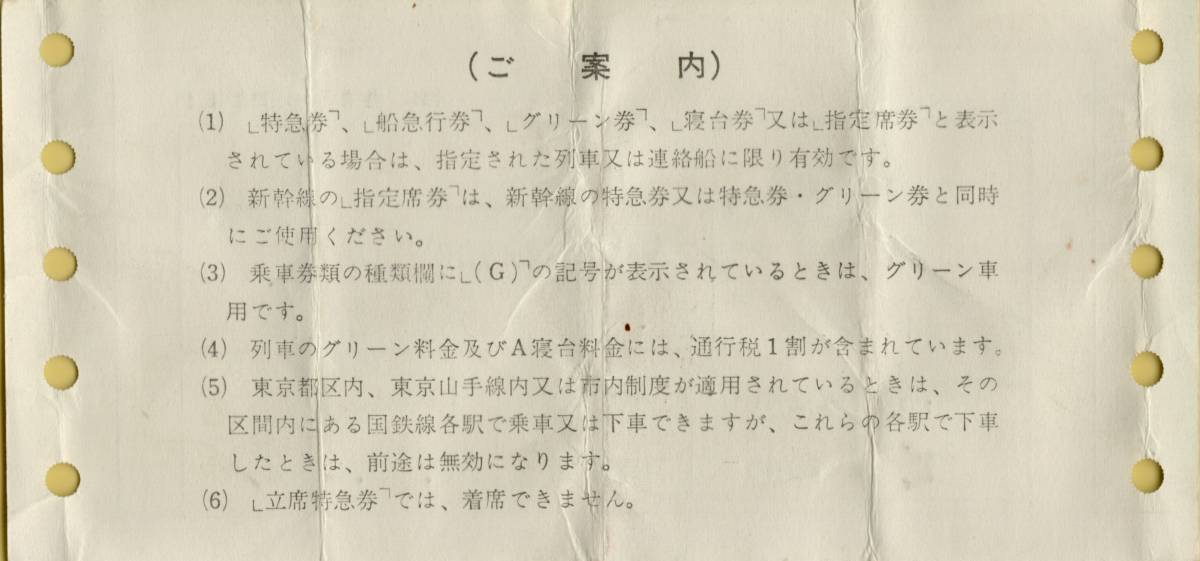 (ご案内)
(1) ｢特急券｣、｢船急行券｣、｢グリーン券｣、｢寝台券｣又は｢指定席券｣と表示
されている場合は、指定された列車又は連絡船に限り有効です。
(2) 新幹線の｢指定席券｣は、新幹線の特急券又は特急券・グリーン券と同時
にご使用ください。
(3) 乗車券類の種類欄に｢(G)｣の記号が表示されているときは、グリーン車
用です。
(4) 列車のグリーン料金及びA寝台料金には、通行税1割が含まれています。
(5) 東京都区内、東京山手線内又は市内制度が適用されているときは、その
区間内にある国鉄線各駅で乗車又は下車できますが、これらの各駅で下車
したときは、前途は無効になります。
(6) ｢立席特急券｣では、着席できません。